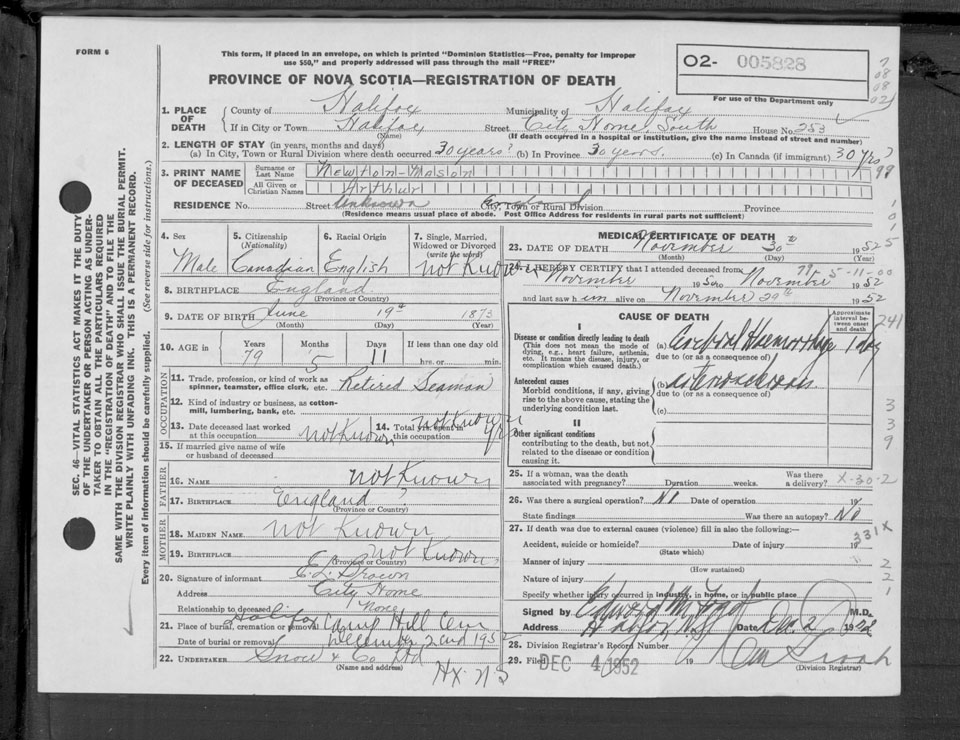 FORM 6
This form, if placed in an envelope, on which is printed "Dominion Statistics—Free, penalty for improper
use $50," and properly addressed will pass through the mail "FREE"
PROVINCE OF NOVA SCOTIA—REGISTRATION OF DEATH
O2- 005828
For use of the Department only
SEC. 46—VITAL STATISTICS ACT MAKES IT THE DUTY
OF THE UNDERTAKER OR PERSON ACTING AS UNDER-
TAKER TO OBTAIN ALL THE PARTICULARS REQUIRED
IN THE "REGISTRATION OF DEATH" AND TO FILE THE
SAME WITH THE DIVISION REGISTRAR WHO SHALL ISSUE THE BURIAL PERMIT.
WRITE PLAINLY WITH UNFADING INK. THIS IS A PERMANENT RECORD.
Every item of information should be carefully supplied. (See reverse side for instructions.)
1. PLACE OF DEATH
County of Halifax Municipality of Halifax
If in City or Town Halifax Street City Home, South House No. 253
(Name) (If death occurred in a hospital or institution, give the name instead of street and number)
2. LENGTH OF STAY (in years, months and days)
(a) In City, Town or Rural Division where death occurred 30 years? (b) In Province 30 years. (c) In Canada (if immigrant) 30 yrs?
3. PRINT NAME OF DECEASED
Surname or Last Name Newton-Mason
All Given or Christian Names Arthur
RESIDENCE No. Street Unknown City, Town or Rural Division England Province
(Residence means usual place of abode. Post Office Address for residents in rural parts not sufficient)
4. Sex Male
5. Citizenship (Nationality) Canadian
6. Racial Origin English
7. Single, Married, Widowed or Divorced (write the word) not Known
8. BIRTHPLACE England
(Province or Country)
9. DATE OF BIRTH June 19th 1873
(Month) (Day) (Year)
10. AGE in Years Months Days If less than one day old
79 5 11 hrs. or min.
OCCUPATION
11. Trade, profession, or kind of work as spinner, teamster, office clerk, etc. Retired Seaman
12. Kind of industry or business, as cotton-mill, lumbering, bank, etc.
13. Date deceased last worked at this occupation not Known
14. Total yrs. spent in this occupation not Known yrs
15. If married give name of wife or husband of deceased
FATHER
16. NAME not Known
17. BIRTHPLACE England ?
(Province or Country)
MOTHER
18. MAIDEN NAME not Known
19. BIRTHPLACE not Known
(Province or Country)
20. Signature of informant E. L. Brown
Address City Home
Relationship to deceased None
21. Place of burial, cremation or removal Halifax Camp Hill Cem
Date of burial or removal December 2nd 1952
22. UNDERTAKER Snow & Co Ltd
(Name and address)
Hx. N S
MEDICAL CERTIFICATE OF DEATH
23. DATE OF DEATH November 30th 1952
(Month) (Day) (Year)
24. I HEREBY CERTIFY that I attended deceased from
November 1950 to November 1952
79-5-11-00
and last saw him alive on November 29th 1952
CAUSE OF DEATH
Approximate interval between onset and death
I
Disease or condition directly leading to death
(This does not mean the mode of dying, e.g., heart failure, asthenia, etc. It means the disease, injury, or complication which caused death.)
(a) Cerebral Haemorrhage 1 day
due to (or as a consequence of)
Antecedent causes
Morbid conditions, if any, giving rise to the above cause, stating the underlying condition last.
(b) arteriosclerosis
due to (or as a consequence of)
(c)
II
Other significant conditions
contributing to the death, but not related to the disease or condition causing it.
25. If a woman, was the death associated with pregnancy? Duration weeks. Was there a delivery? X-30-2
26. Was there a surgical operation? No Date of operation 19
State findings Was there an autopsy? No
27. If death was due to external causes (violence) fill in also the following:—
Accident, suicide or homicide? Date of injury 19
(State which)
331X
Manner of injury
(How sustained)
Nature of injury
Specify whether injury occurred in industry, in home, or in public place
Signed by M.D.
Address Halifax N.S. Date Dec. 2 1952
28. Division Registrar's Record Number
29. Filed DEC 4 1952 19
(Division Registrar)
241
339